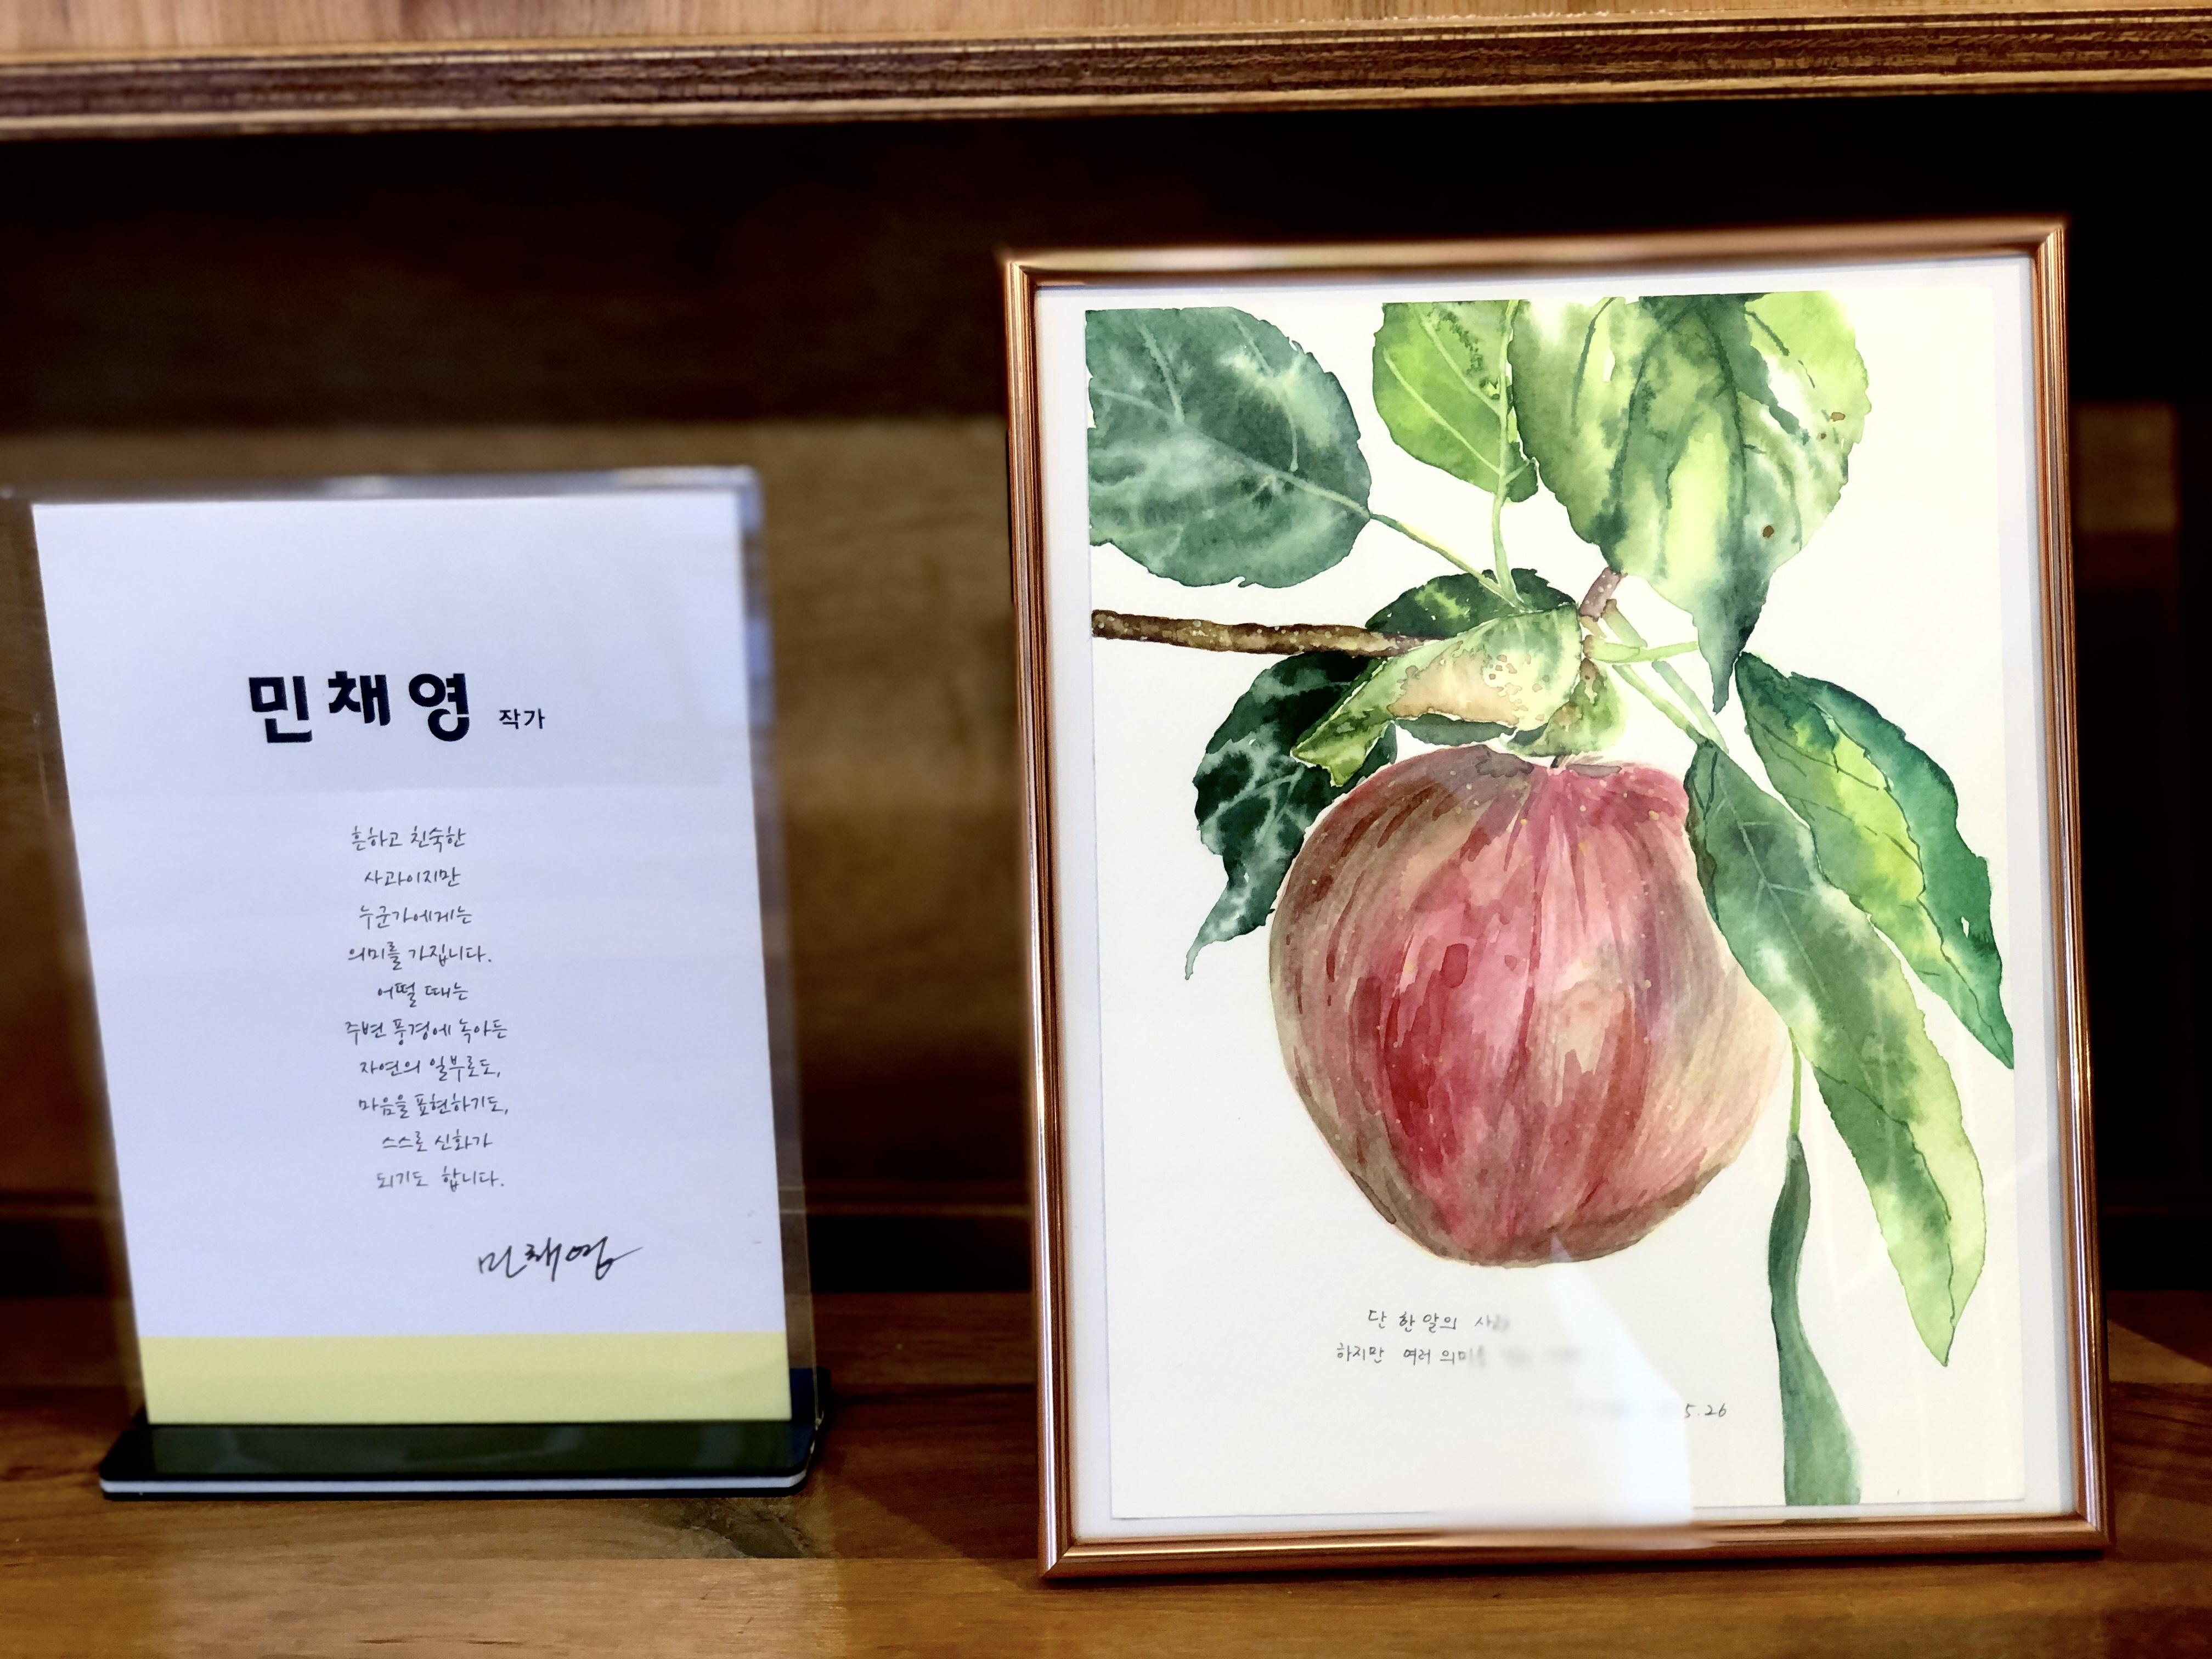 민채영 작가
흔하고 친숙한
사과이지만
누군가에게는
의미를 가집니다.
어떨 때는
주변 풍경에 녹아든
자연의 일부로도,
마음을 표현하기도,
스스로 신화가
되기도 합니다.
민채영
단 한 알의
하지만 여러
5.26